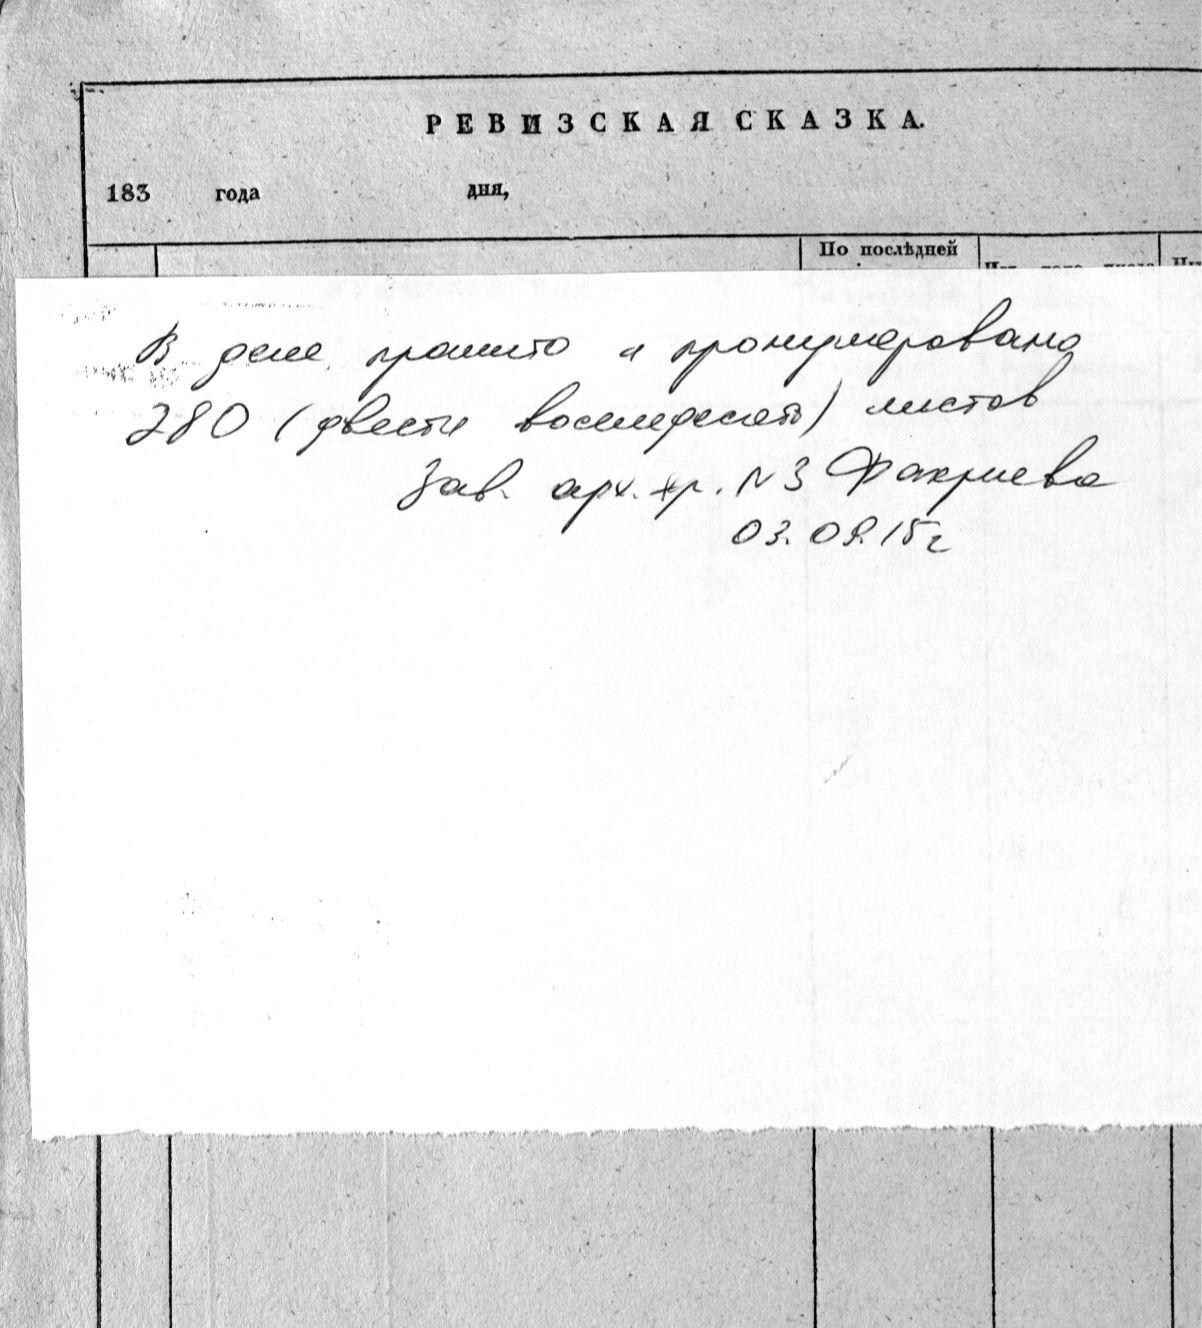 РЕВИЗСКАЯ СКАЗКА.
183 года дня,
По послѣдней
В деле прошито и пронумеровано
280 (двести восемьдесят) листов
Зав. арх. хр. N 3 Фахриева
03.09.15 г